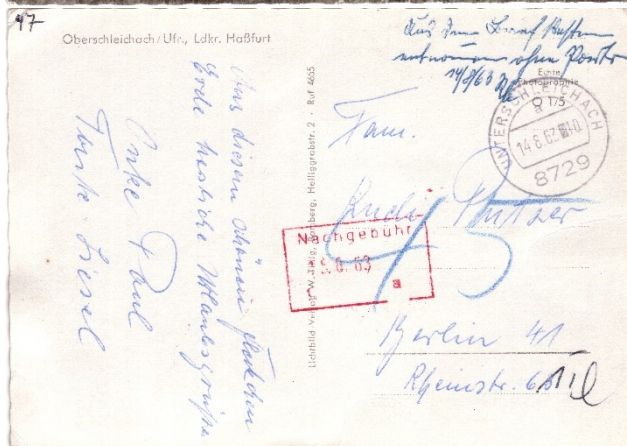 47
Oberschleichach/Ufr., Ldkr. Haßfurt
Aus dem Brief Kasten
entnommen ohne Porto
14/8/63
Echte
Photographie
O 175
UNTERSCHLEICHACH
a
14.8.63
8729
Aus diesem schönen Fleckchen
Erde herzliche Urlaubsgrüße
Onke Paul
Tante Liesel
Lichtbild Verlag W. Bamberg, Heiliggrabstr. 2 · Ruf 4665
Fam.
Rudi
45
Nachgebühr
8. 63
a
Berlin 41
Rheinstr.